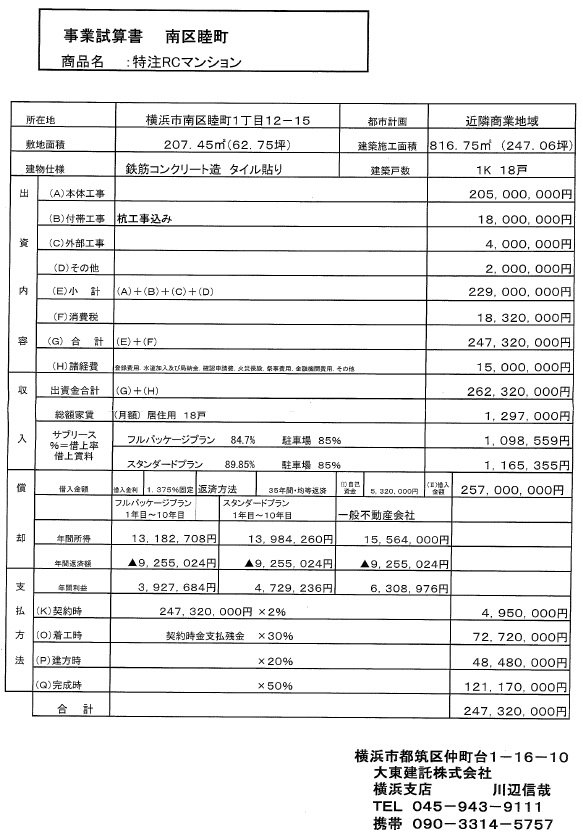 事業試算書 南区睦町
商品名 :特注RCマンション
所在地 横浜市南区睦町1丁目12-15 都市計画 近隣商業地域
敷地面積 207.45㎡(62.75坪) 建築施工面積 816.75㎡(247.06坪)
建物仕様 鉄筋コンクリート造 タイル貼り 建築戸数 1K 18戸
出資内容
(A)本体工事 205,000,000円
(B)付帯工事 杭工事込み 18,000,000円
(C)外部工事 4,000,000円
(D)その他 2,000,000円
(E)小 計 (A)+(B)+(C)+(D) 229,000,000円
(F)消費税 18,320,000円
(G) 合 計 (E)+(F) 247,320,000円
(H)諸経費 登録費用、水道加入及び局納金、確認申請費、火災保険、祭事費用、金融機関費用、その他 15,000,000円
収入
出資金合計 (G)+(H) 262,320,000円
総額家賃 (月額) 居住用 18戸 1,297,000円
サブリース
%=借上率
借上賃料
フルパッケージプラン 84.7% 駐車場 85% 1,098,559円
スタンダードプラン 89.85% 駐車場 85% 1,165,355円
償却
借入金額 借入金利 1.375%固定 返済方法 35年間・均等返済 (Ⅰ)自己資金 5,320,000円 (Ⅱ)借入金額 257,000,000円
フルパッケージプラン スタンダードプラン
1年目~10年目 1年目~10年目 一般不動産会社
年間所得 13,182,708円 13,984,260円 15,564,000円
年間返済額 ▲9,255,024円 ▲9,255,024円 ▲9,255,024円
年間利益 3,927,684円 4,729,236円 6,308,976円
支払方法
(K)契約時 247,320,000円 ×2% 4,950,000円
(O)着工時 契約時金支払残金 ×30% 72,720,000円
(P)建方時 ×20% 48,480,000円
(Q)完成時 ×50% 121,170,000円
合 計 247,320,000円
横浜市都筑区仲町台1-16-10
大東建託株式会社
横浜支店 川辺信哉
TEL 045-943-9111
携帯 090-3314-5757